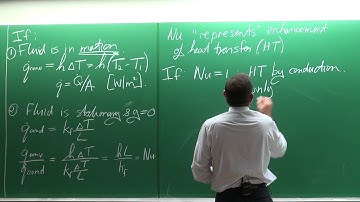 If:
① Fluid is in motion
q̇conv = h ΔT = h(T₂-T₁)
q̇ = Q̇/A [W/m²].
② Fluid is stationary
q̇cond = kf ΔT/L
q̇conv/q̇cond = hΔT/(kf ΔT/L) = hL/kf = Nu
Nu "represents" enhancement
of heat transfer (HT)
If Nu=1 HT by conduction.
only